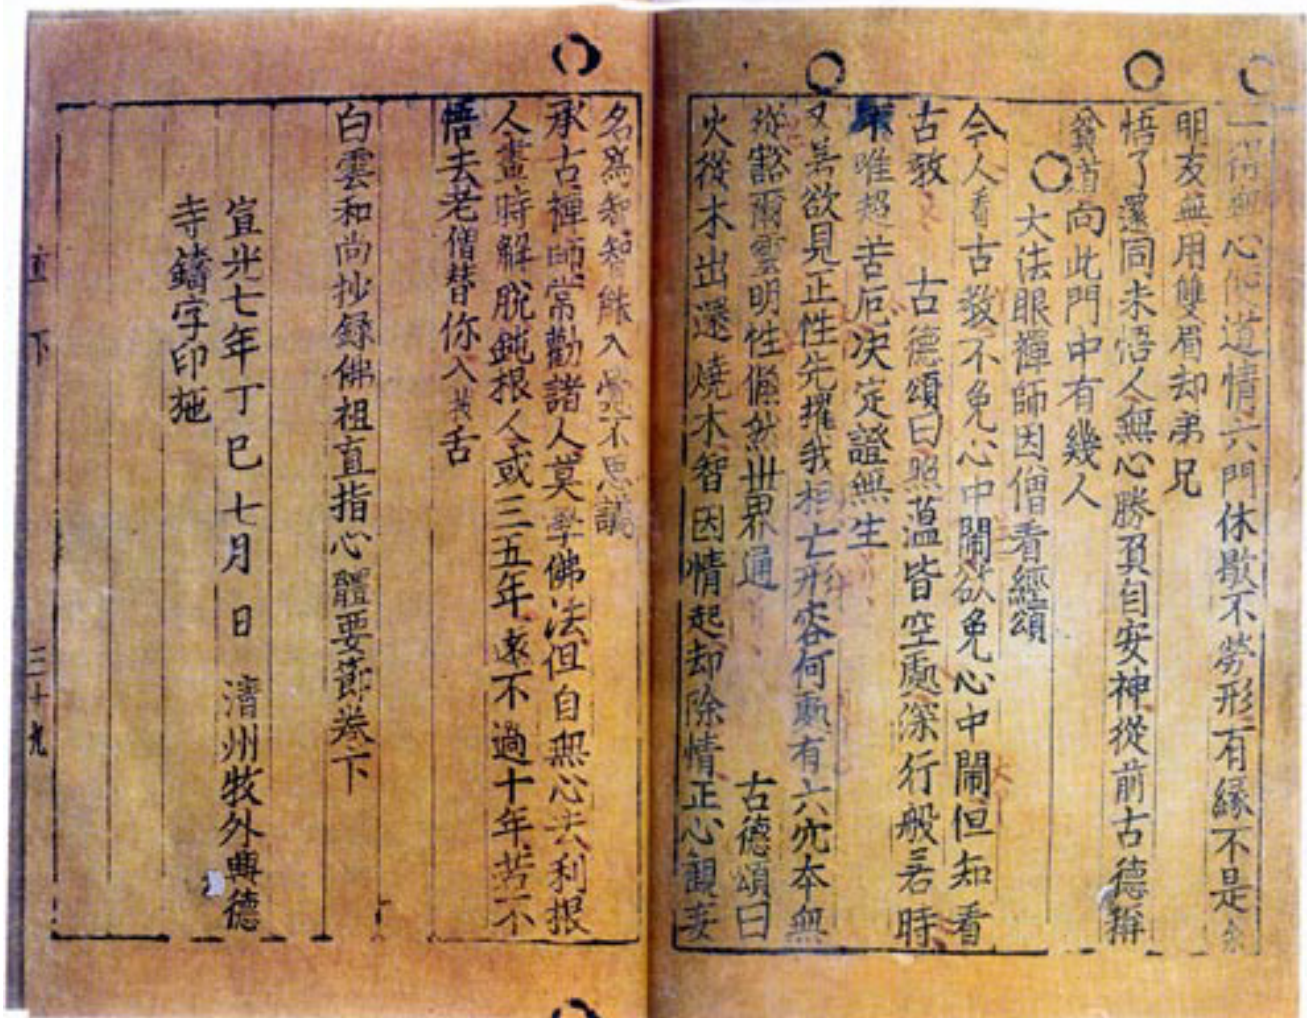 一得無心便道情六門休歇不勞形有緣不是余
朋友無用雙眉却弟兄
悟了還同未悟人無心勝負自安神從前古德稱
貧道向此門中有幾人
大法眼禪師因僧看經頌
今人看古教不免心中鬧欲免心中鬧但知看
古教 古德頌曰照蘊皆空處深行般若時
唯超苦厄決定證無生
又若欲見正性先擢我相亡形容何處有六穴本無
從豁爾雲明性翛然世界通 古德頌曰
火從木出還燒木智因情起却除情正心觀妄
名爲知智能入覺不思議
承古禪師常勸諸人莫學佛法但自無心去利根
人晝時解脫鈍根人或三五年遠不過十年若不
悟去老僧替你入拔舌
白雲和尚抄錄佛祖直指心體要節卷下
宣光七年丁巳七月 日 淸州牧外興德
寺鑄字印施
直 下 三十九